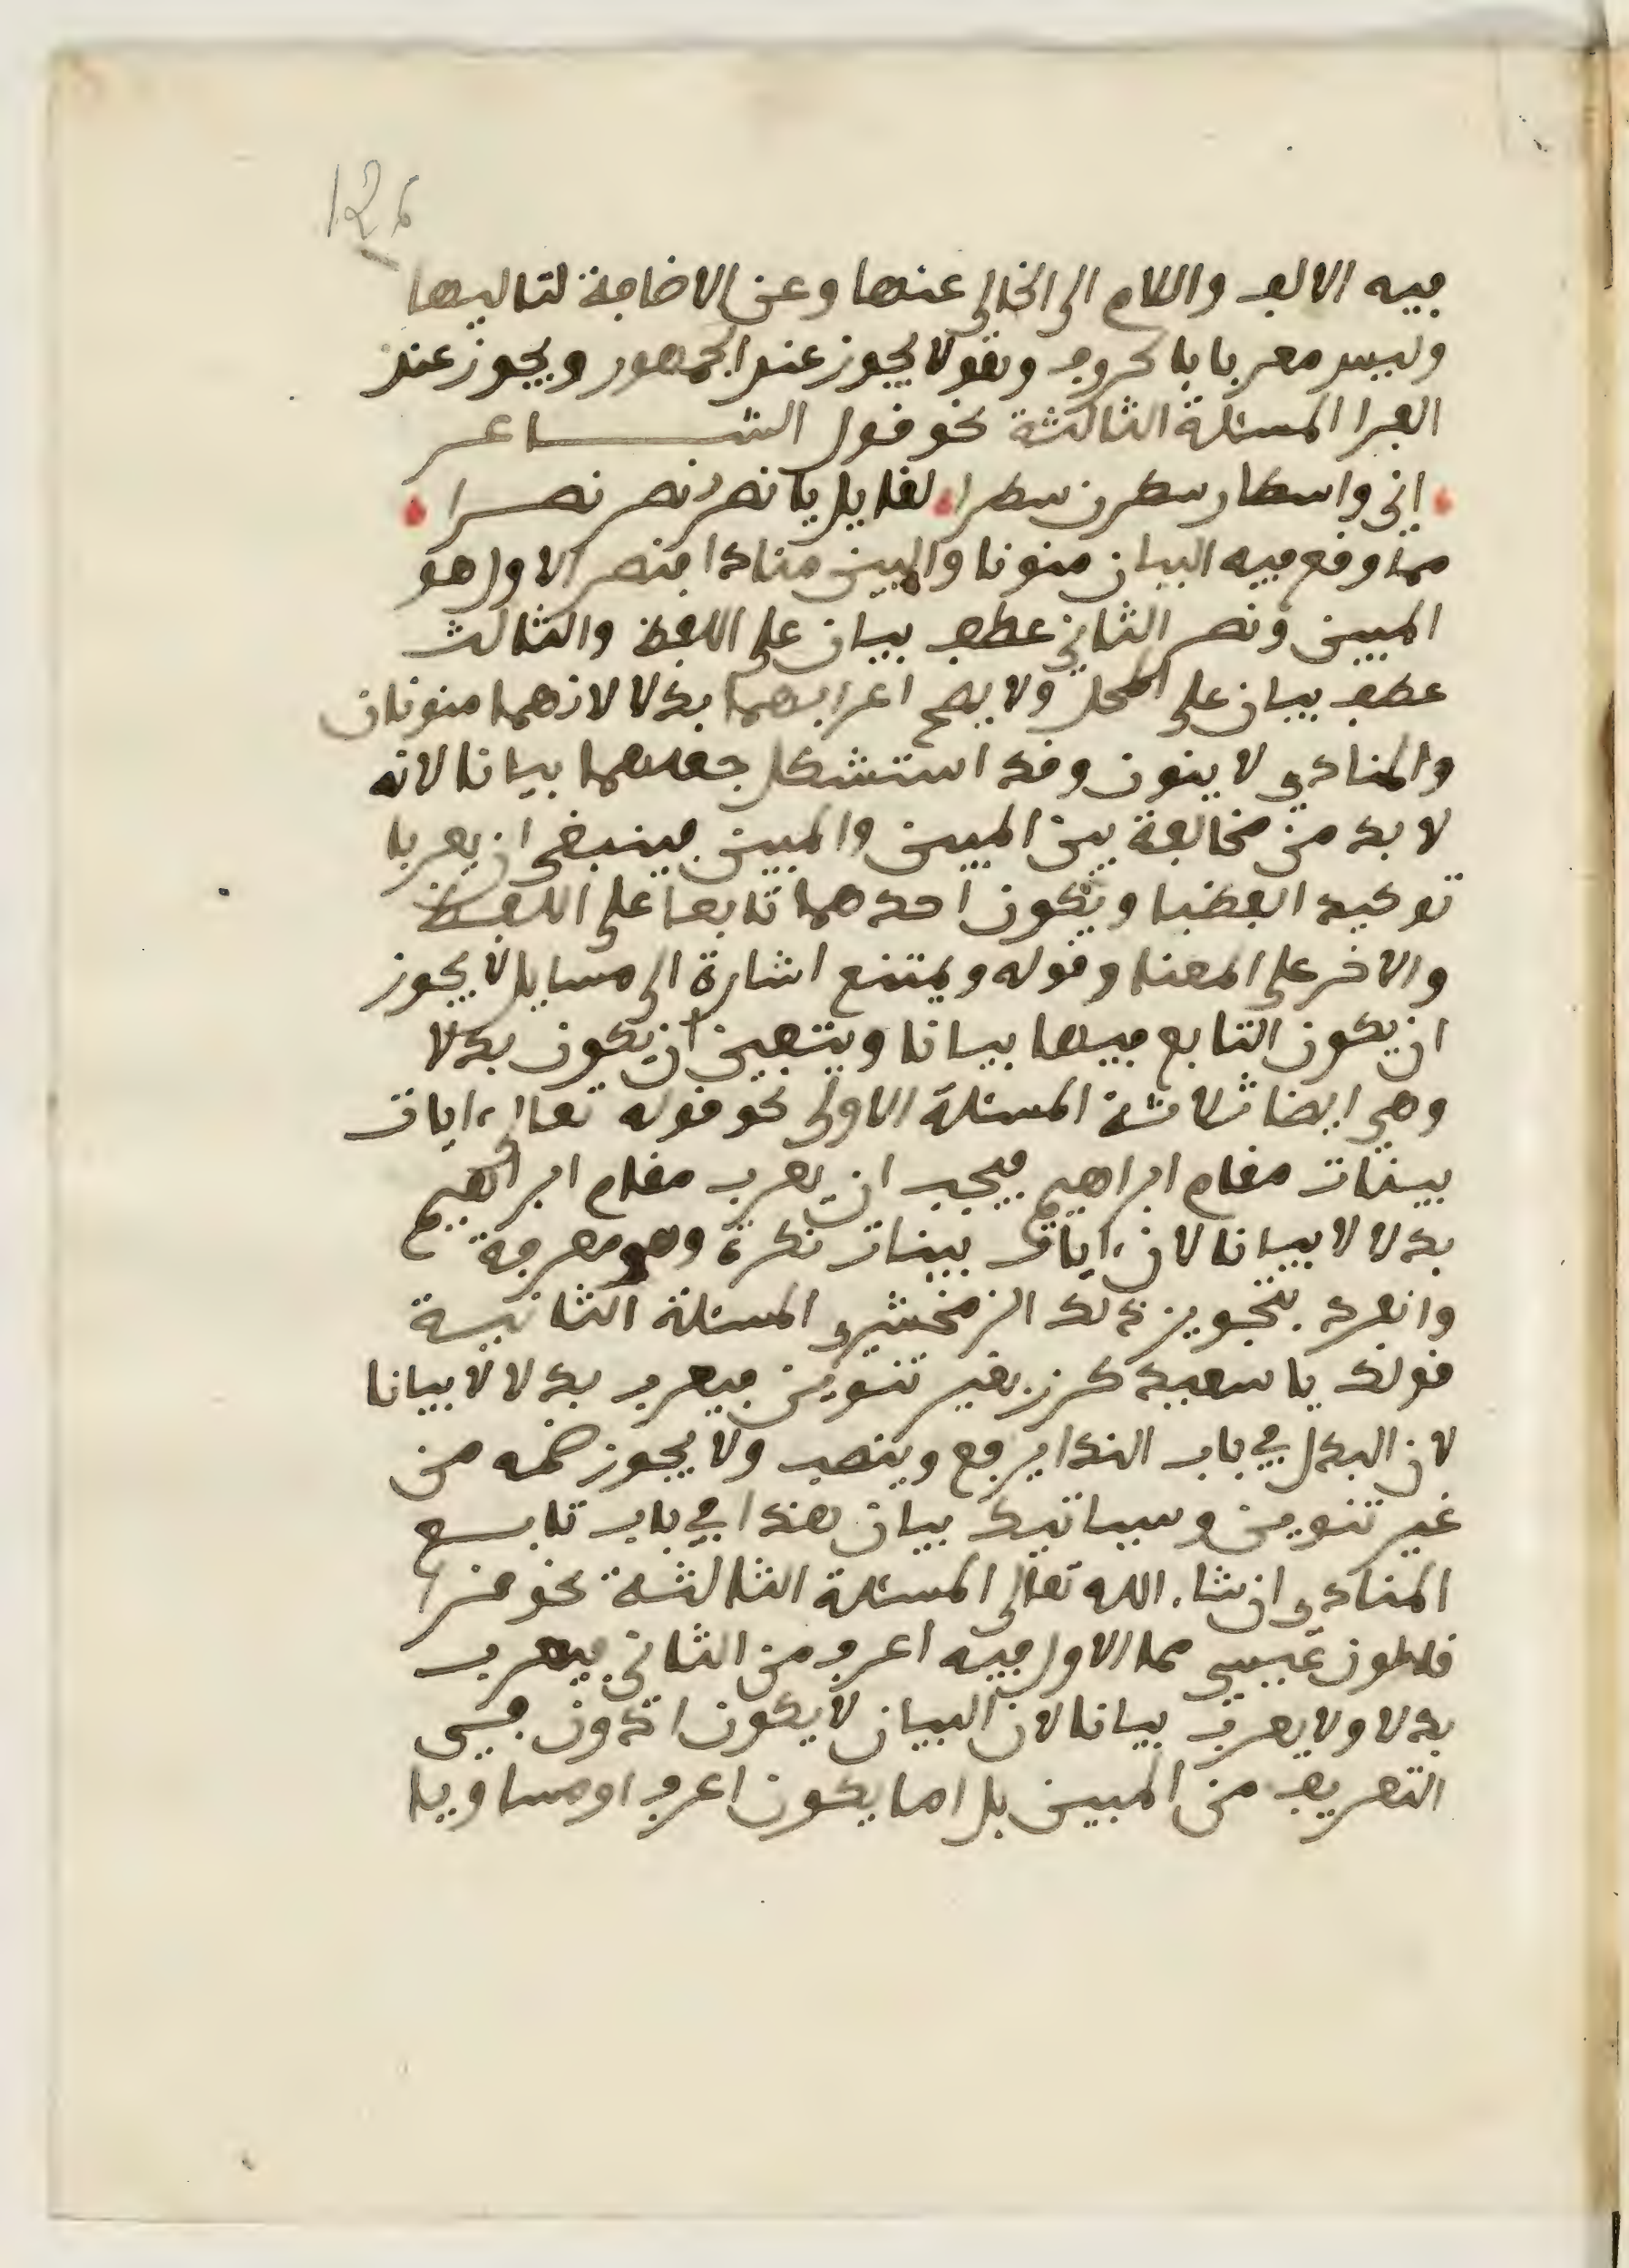 126
فيه الالف واللام الى الخالى عنها وعن الاضافة لتاليها
وليس معربا بالحروف ونقولا يجوز عند الجمهور ويجوز عند
الفرا المسئلة الثالثة نحو قول الشاعر
اني واسطار سطرن سطرا لقايل يا نصر نصر نصرا
مما وقع فيه البيان منونا والمبين منادا فنصر الاول هو
المبين ونصر الثاني عطف بيان على اللفظ والثالث
عطف بيان على المحل ولا يصح اعرابهما بدلا لانهما منونان
والمنادى لا ينون وقد استشكل جعلهما بيانا لانه
لا بد من مخالفة بين المبين والمبين فينبغي ان يعربا
توكيد الفضيا ويكون احدهما تابعا على اللفظ
والاخر على المعنا وقوله ويمتنع اشارة الى مسايل لا يجوز
ان يكون التابع فيها بيانا ويتعين ان يكون بدلا
وهي ايضا ثلاثة المسئلة الاولى نحو قوله تعالى ءايات
بينات مقام ابراهيم فيجب ان يعرب مقام ابراهيم
بدلا لا بيانا لان ءايات بينات نكرة وهو معرفة
وانفرد بتجويز ذلك الزمخشري المسئلة الثانية
قولك يا سعيد كرز بغير تنوين فيعرب بدلا لا بيانا
لان البدل في باب الندا يرفع وينصب ولا يجوز ضمه من
غير تنوين وسياتيك بيان هذا في باب تابع
المنادى ان شاء الله تعالى المسئلة الثالثة نحو
قالون عيسى مما الاول فيه اعرف من الثاني فيعرب
بدلا ولا يعرب بيانا لان البيان لا يكون ادون في
التعريف من المبين بل اما يكون اعرف او مساويا